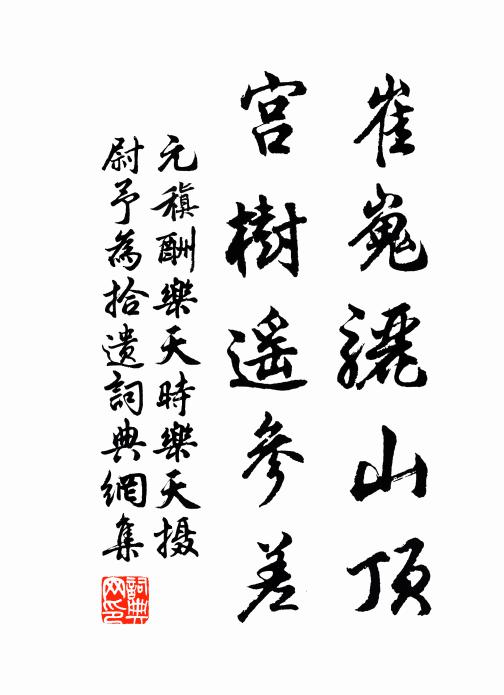 崔嵬驪山頂
宮樹遥參差
元稹酬樂天時樂天摄
尉予為拾遺詞典網集
詞典网印